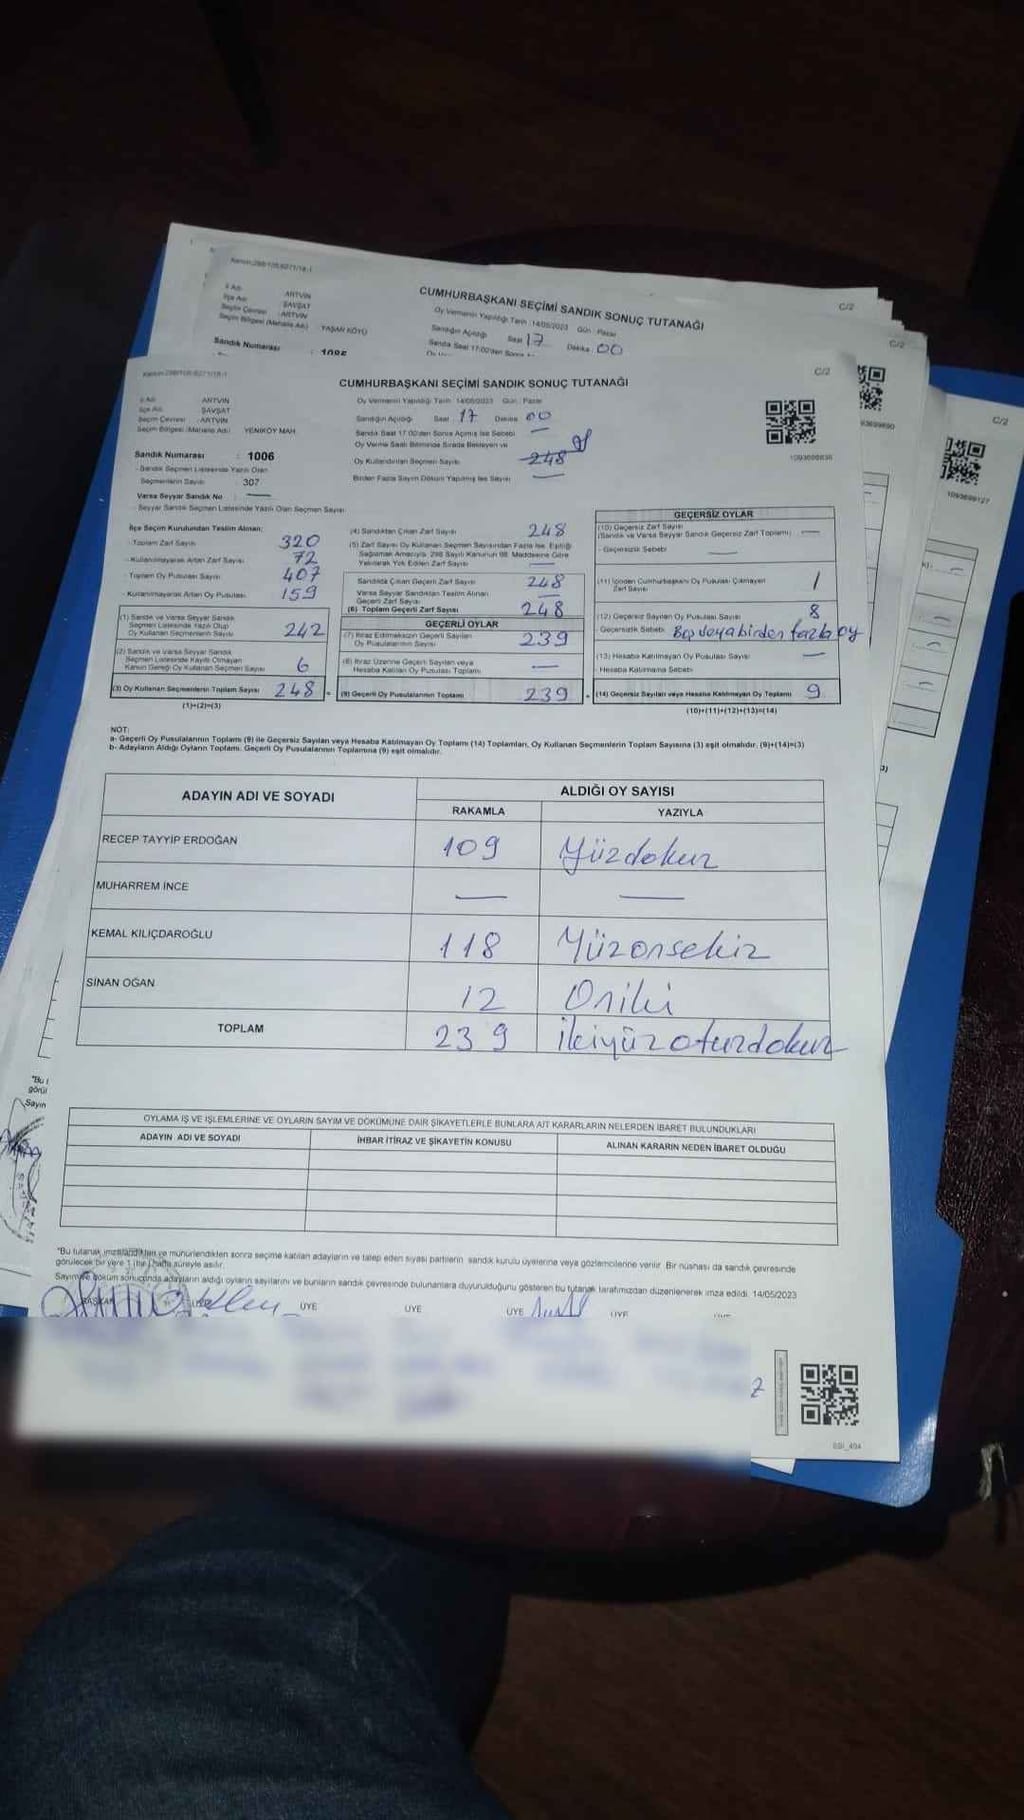 ARTVİN
ŞAVŞAT
ARTVİN
YAŞAR KÖYÜ
Sandık Numarası
CUMHURBAŞKANI SEÇİMİ SANDIK SONUÇ TUTANAĞI
Oy Vermenin Yapıldığı Tarih : 14/05/2023 Gün : Pazar
Sandığın Açıldığı Saat 17 Dakika 00
C/2
C/2
C/2
1093699127
CUMHURBAŞKANI SEÇİMİ SANDIK SONUÇ TUTANAĞI
C/2
İl Adı : ARTVİN
İlçe Adı : ŞAVŞAT
Seçim Çevresi : ARTVİN
Seçim Bölgesi (Mahalle Adı) : YENİKÖY MAH.
Sandık Numarası : 1006
- Sandık Seçmen Listesinde Yazılı Olan
Seçmenlerin Sayısı : 307
Varsa Seyyar Sandık No : —
- Seyyar Sandık Seçmen Listesinde Yazılı Olan Seçmen Sayısı
Oy Vermenin Yapıldığı Tarih : 14/05/2023 Gün : Pazar
Sandığın Açıldığı Saat : 17 Dakika : 00
Sandık Saat 17:00'den Sonra Açılmış İse Sebebi —
Oy Verme Saati Bitiminde Sırada Bekleyen ve
Oy Kullandırılan Seçmen Sayısı 248
Birden Fazla Sayım Döküm Yapılmış İse Sayısı —
1093699636
İlçe Seçim Kurulundan Teslim Alınan;
- Toplam Zarf Sayısı 320
- Kullanılmayarak Artan Zarf Sayısı 72
- Toplam Oy Pusulası Sayısı 407
- Kullanılmayarak Artan Oy Pusulası 159
(1) Sandık ve Varsa Seyyar Sandık
Seçmen Listesinde Yazılı Olup
Oy Kullanan Seçmenlerin Sayısı 242
(2) Sandık ve Varsa Seyyar Sandık
Seçmen Listesinde Kayıtlı Olmayan
Kanun Gereği Oy Kullanan Seçmenlerin Sayısı 6
(3) Oy Kullanan Seçmenlerin Toplam Sayısı 248
(1)+(2)=(3)
(4) Sandıktan Çıkan Zarf Sayısı 248
(5) Zarf Sayısı Oy Kullanan Seçmen Sayısından Fazla İse, Eşitliği
Sağlamak Amacıyla, 298 Sayılı Kanunun 98. Maddesine Göre
Yakılarak Yok Edilen Zarf Sayısı —
Sandıkta Çıkan Geçerli Zarf Sayısı 248
Varsa Seyyar Sandıktan Teslim Alınan
Geçerli Zarf Sayısı —
(6) Toplam Geçerli Zarf Sayısı 248
GEÇERLİ OYLAR
(7) İtiraz Edilmeksizin Geçerli Sayılan
Oy Pusulalarının Sayısı 239
(8) İtiraz Üzerine Geçerli Sayılan veya
Hesaba Katılan Oy Pusulaları Toplamı —
(9) Geçerli Oy Pusulalarının Toplamı 239
GEÇERSİZ OYLAR
(10) Geçersiz Zarf Sayısı
(Sandık ve Varsa Seyyar Sandık Geçersiz Zarf Toplamı) —
- Geçersizlik Sebebi —
(11) İçinden Cumhurbaşkanı Oy Pusulası Çıkmayan
Zarf Sayısı 1
(12) Geçersiz Sayılan Oy Pusulası Sayısı 8
- Geçersizlik Sebebi Boş veya birden fazla oy
(13) Hesaba Katılmayan Oy Pusulası Sayısı —
- Hesaba Katılmama Sebebi
(14) Geçersiz Sayılan veya Hesaba Katılmayan Oy Toplamı 9
(10)+(11)+(12)+(13)=(14)
NOT:
a- Geçerli Oy Pusulalarının Toplamı (9) ile Geçersiz Sayılan veya Hesaba Katılmayan Oy Toplamı (14) Toplamları, Oy Kullanan Seçmenlerin Toplam Sayısına (3) eşit olmalıdır. (9)+(14)=(3)
b- Adayların Aldığı Oyların Toplamı, Geçerli Oy Pusulalarının Toplamına (9) eşit olmalıdır.
ADAYIN ADI VE SOYADI
ALDIĞI OY SAYISI
RAKAMLA YAZIYLA
RECEP TAYYİP ERDOĞAN 109 Yüzdokuz
MUHARREM İNCE — —
KEMAL KILIÇDAROĞLU 118 Yüzonsekiz
SİNAN OĞAN 12 Oniki
TOPLAM 239 İkiyüzotuzdokuz
OYLAMA İŞ VE İŞLEMLERİNE VE OYLARIN SAYIM VE DÖKÜMÜNE DAİR ŞİKAYETLERLE BUNLARA AİT KARARLARIN NELERDEN İBARET BULUNDUKLARI
ADAYIN ADI VE SOYADI İHBAR İTİRAZ VE ŞİKAYETİN KONUSU ALINAN KARARIN NEDEN İBARET OLDUĞU
"Bu tutanak imzalandıktan ve mühürlendikten sonra seçime katılan adayların ve talep eden siyasi partilerin sandık kurulu üyelerine veya gözlemcilerine verilir. Bir nüshası da sandık çevresinde
görülecek bir yere 1 (bir) hafta süreyle asılır.
Sayım ve döküm sonucunda adayların aldığı oyların sayılarını ve bunların sandık çevresinde bulunanlara duyurulduğunu gösteren bu tutanak tarafımızdan düzenlenerek imza edildi. 14/05/2023
BAŞKAN ÜYE ÜYE ÜYE ÜYE ÜYE